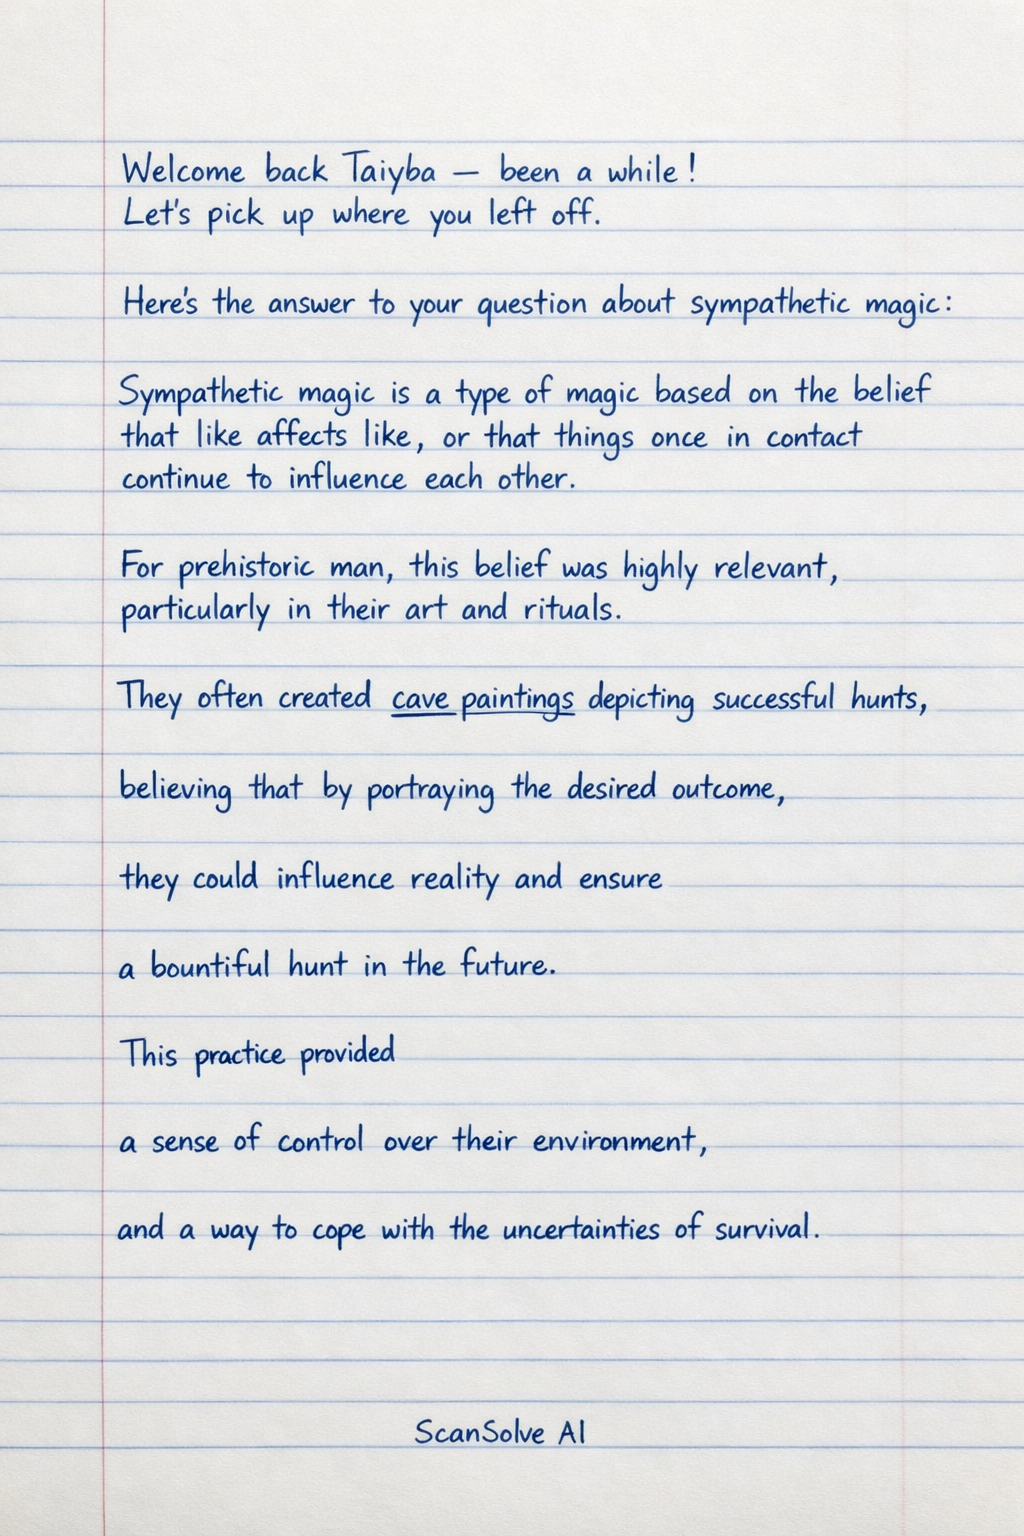 Welcome back Taiyba — been a while!
Let's pick up where you left off.
Here's the answer to your question about sympathetic magic:
Sympathetic magic is a type of magic based on the belief
that like affects like, or that things once in contact
continue to influence each other.
For prehistoric man, this belief was highly relevant,
particularly in their art and rituals.
They often created cave paintings depicting successful hunts,
believing that by portraying the desired outcome,
they could influence reality and ensure
a bountiful hunt in the future.
This practice provided
a sense of control over their environment,
and a way to cope with the uncertainties of survival.
ScanSolve AI